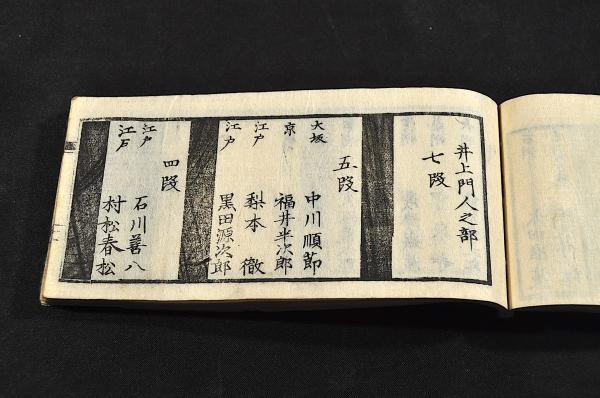 井上門人之部
七段
五段
大坂 中川順節
京 福井半次郎
江戸 梨本徹
江戸 黒田源次郎
四段
江戸 石川善八
江戸 村松春松